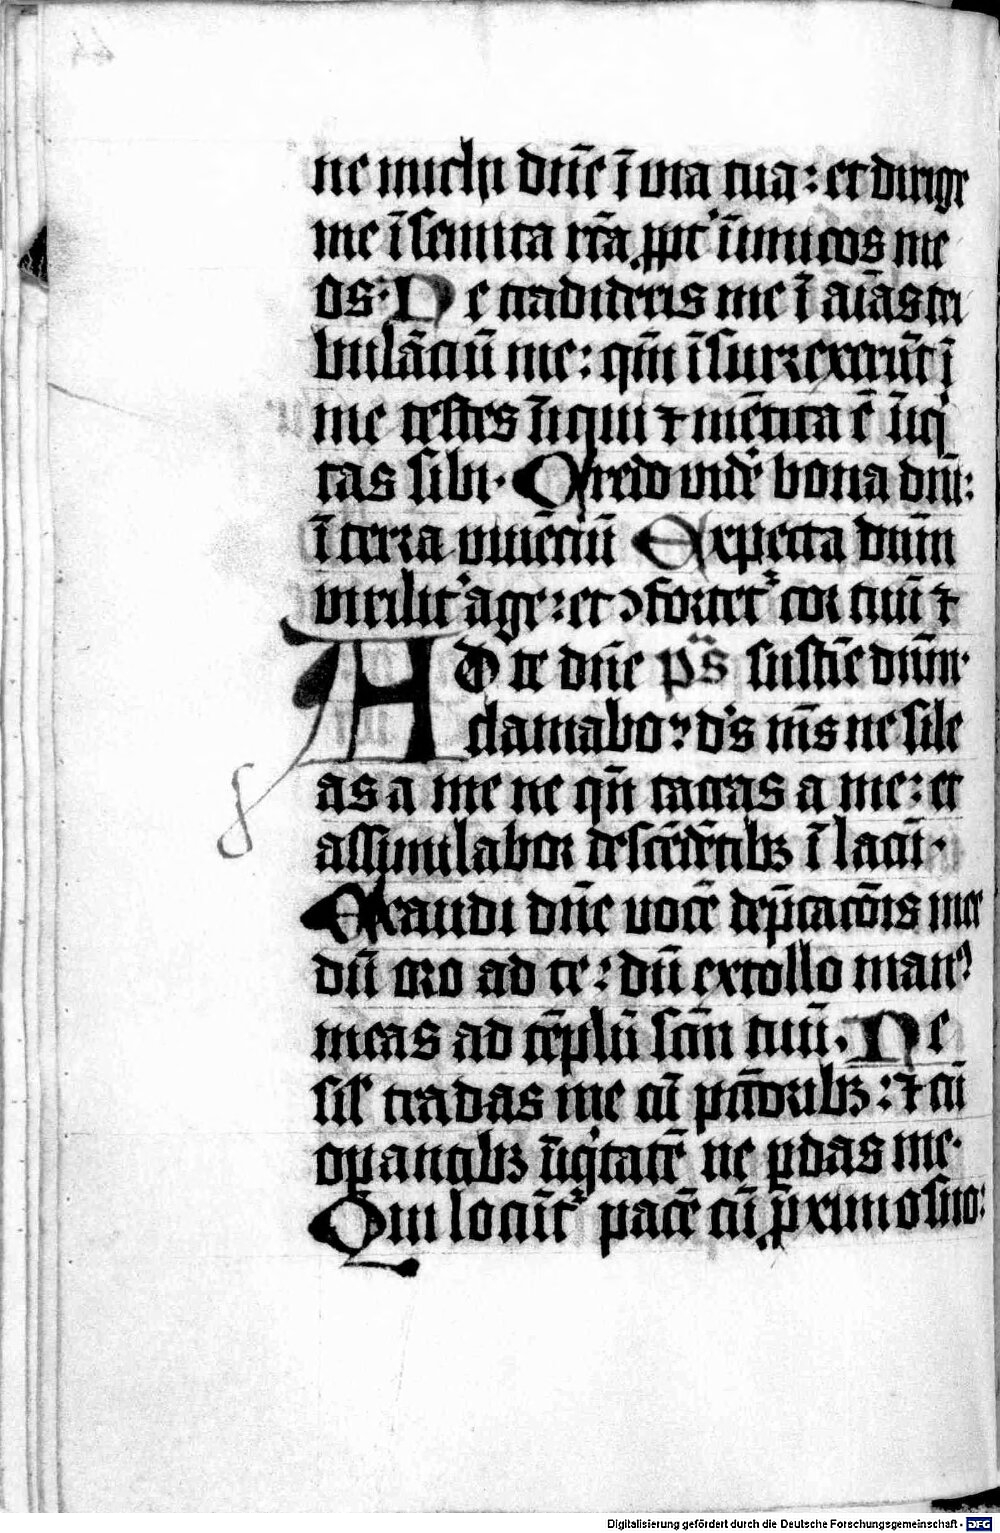 ne michi dn̄e ī via tua: et dirige
me ī semita rc̄a ꝓpt' īimicos me
os. Ne tradideris me ī aīas tri
bulāciū me: qm̄ īsurrexerūt ī
me testes īiqui ⁊ mētita ē īiq
tas sibi. Credo vid'e bona dn̄i:
ī terra viuēciū Expecta dn̄m
virilit' age: et ↄfortet' cor tuū ⁊
AD te dn̄e p̄s sustīe dn̄m.
clamabo: d's m̄s ne sile
as a me ne qn̄ taceas a me: et
assimilabor descēdētibꝫ ī lacū.
Exaudi dn̄e vocē dep̄cacōis mee
dū oro ad te: dū extollo man9
meas ad tēplū scm̄ tuū. Ne
sil' tradas me cū pcc̄oribꝫ: ⁊ cū
oꝑantibꝫ īiq'tatē ne ꝑdas me.
Qui locūt' pacē cū ꝓximo suo:
Digitalisierung gefördert durch die Deutsche Forschungsgemeinschaft - DFG